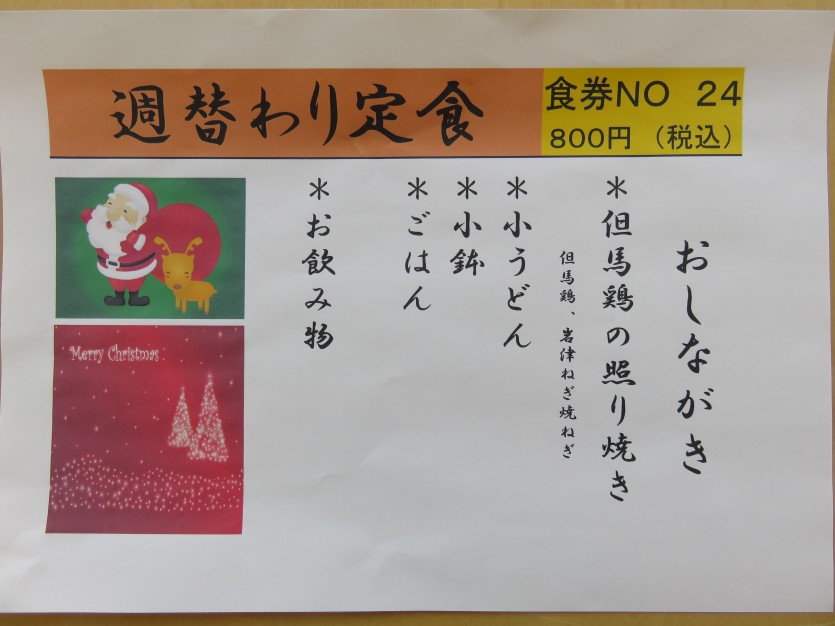 週替わり定食
食券NO 24
800円（税込）
おしながき
＊但馬鶏の照り焼き
但馬鶏、岩津ねぎ焼ねぎ
＊小うどん
＊小鉢
＊ごはん
＊お飲み物
Merry Christmas